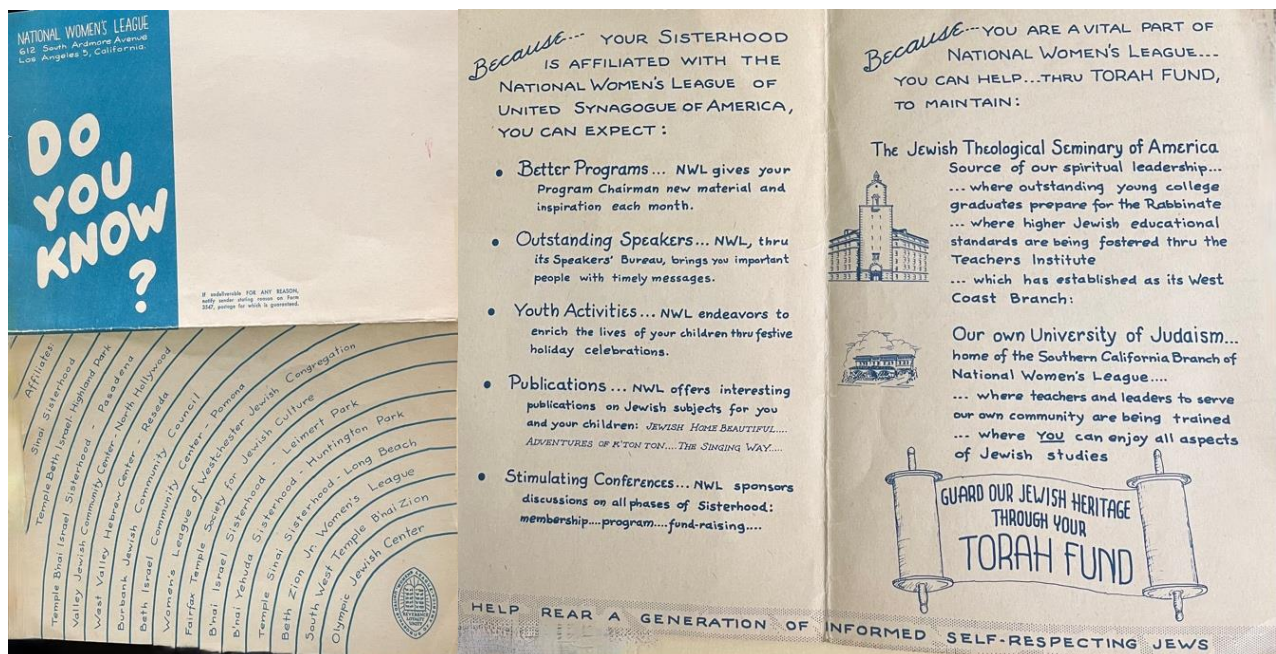 NATIONAL WOMEN'S LEAGUE
612 South Ardmore Avenue
Los Angeles 5, California.
DO
YOU
KNOW
?
If undeliverable FOR ANY REASON,
notify sender stating reason on Form
3547, postage for which is guaranteed.
Affiliates:
Sinai Sisterhood
Temple Beth Israel-Highland Park
Temple B'nai Israel Sisterhood - Pasadena
Valley Jewish Community Center-North Hollywood
West Valley Hebrew Center-Reseda
Burbank Jewish Community Council
Beth Israel Community Center-Pomona
Women's League of Westchester Jewish Congregation
Fairfax Temple Society for Jewish Culture
B'nai Israel Sisterhood - Leimert Park
B'nai Yehuda Sisterhood-Huntington Park
Temple Sinai Sisterhood-Long Beach
Beth Zion Jr. Women's League
South West Temple B'nai Zion
Olympic Jewish Center
Because--- YOUR SISTERHOOD
IS AFFILIATED WITH THE
NATIONAL WOMEN'S LEAGUE OF
UNITED SYNAGOGUE OF AMERICA,
YOU CAN EXPECT:
• Better Programs... NWL gives your
Program Chairman new material and
inspiration each month.
• Outstanding Speakers... NWL, thru
its Speakers' Bureau, brings you important
people with timely messages.
• Youth Activities... NWL endeavors to
enrich the lives of your children thru festive
holiday celebrations.
• Publications ... NWL offers interesting
publications on Jewish subjects for you
and your children: JEWISH HOME BEAUTIFUL....
ADVENTURES OF K'TON TON....THE SINGING WAY.....
• Stimulating Conferences... NWL sponsors
discussions on all phases of Sisterhood:
membership....program....fund-raising....
Because---YOU ARE A VITAL PART OF
NATIONAL WOMEN'S LEAGUE....
YOU CAN HELP...THRU TORAH FUND,
TO MAINTAIN:
The Jewish Theological Seminary of America
Source of our spiritual leadership...
... where outstanding young college
graduates prepare for the Rabbinate
... where higher Jewish educational
standards are being fostered thru the
Teachers Institute
... which has established as its West
Coast Branch:
Our own University of Judaism...
home of the Southern California Branch of
National Women's League....
... where teachers and leaders to serve
our own community are being trained
... where YOU can enjoy all aspects
of Jewish studies
GUARD OUR JEWISH HERITAGE
THROUGH YOUR
TORAH FUND
HELP REAR A GENERATION OF INFORMED SELF-RESPECTING JEWS